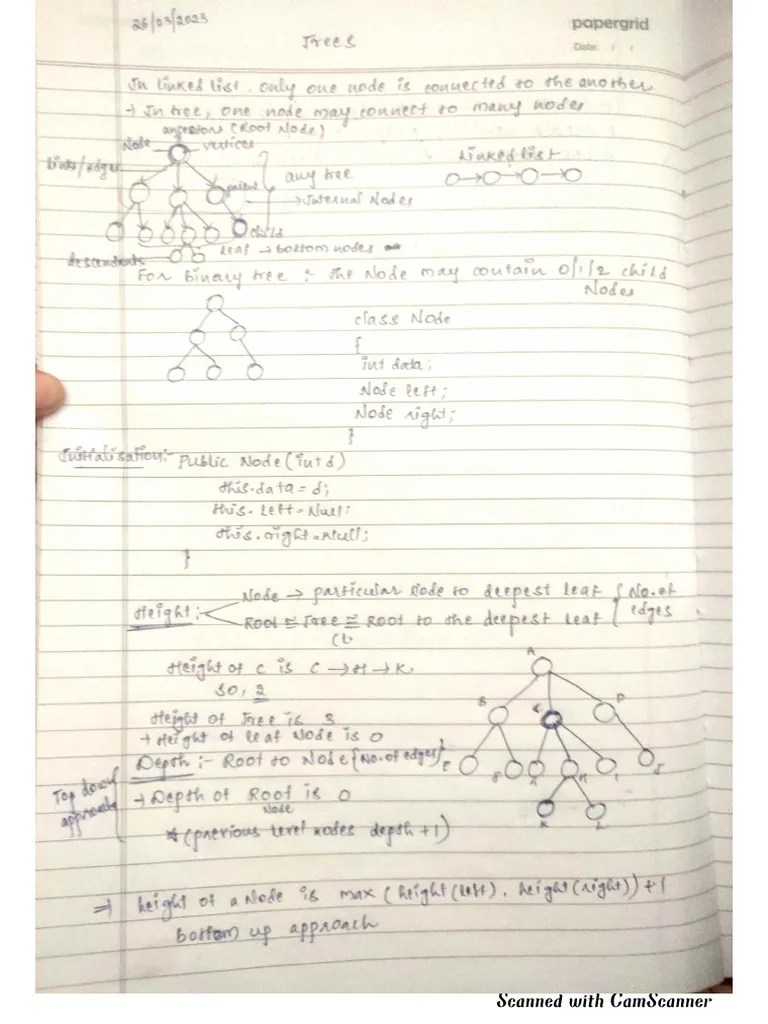 26/03/2023
papergrid
Trees
Date: / /
In linked list, only one node is connected to the another
→ In tree, one node may connect to many nodes
ancestors (Root Node)
Node
vertices
Linked list
links/edges
any tree
parent
→ Internal Nodes
child
leaf → bottom nodes
descendents
For binary tree :- the Node may contain 0/1/2 child
Nodes
class Node
{
int data;
Node left;
Node right;
}
Initialisation:- Public Node(int d)
this.data = d;
this.left = Null;
this.right = Null;
}
Height :- Node → particular Node to deepest leaf { No. of
Root ≅ Tree ≅ Root to the deepest leaf edges
Height of C is C → H → K.
so, 2
Height of Tree is 3
→ Height of leaf Node is 0
Depth :- Root to Node {No. of edges}
Top down
approach
→ Depth of Root is 0
Node
* (previous level nodes depth + 1)
A
B C D
E F G H I J
K L
⇒ height of a Node is max (height(left), height(right)) + 1
bottom up approach
Scanned with CamScanner